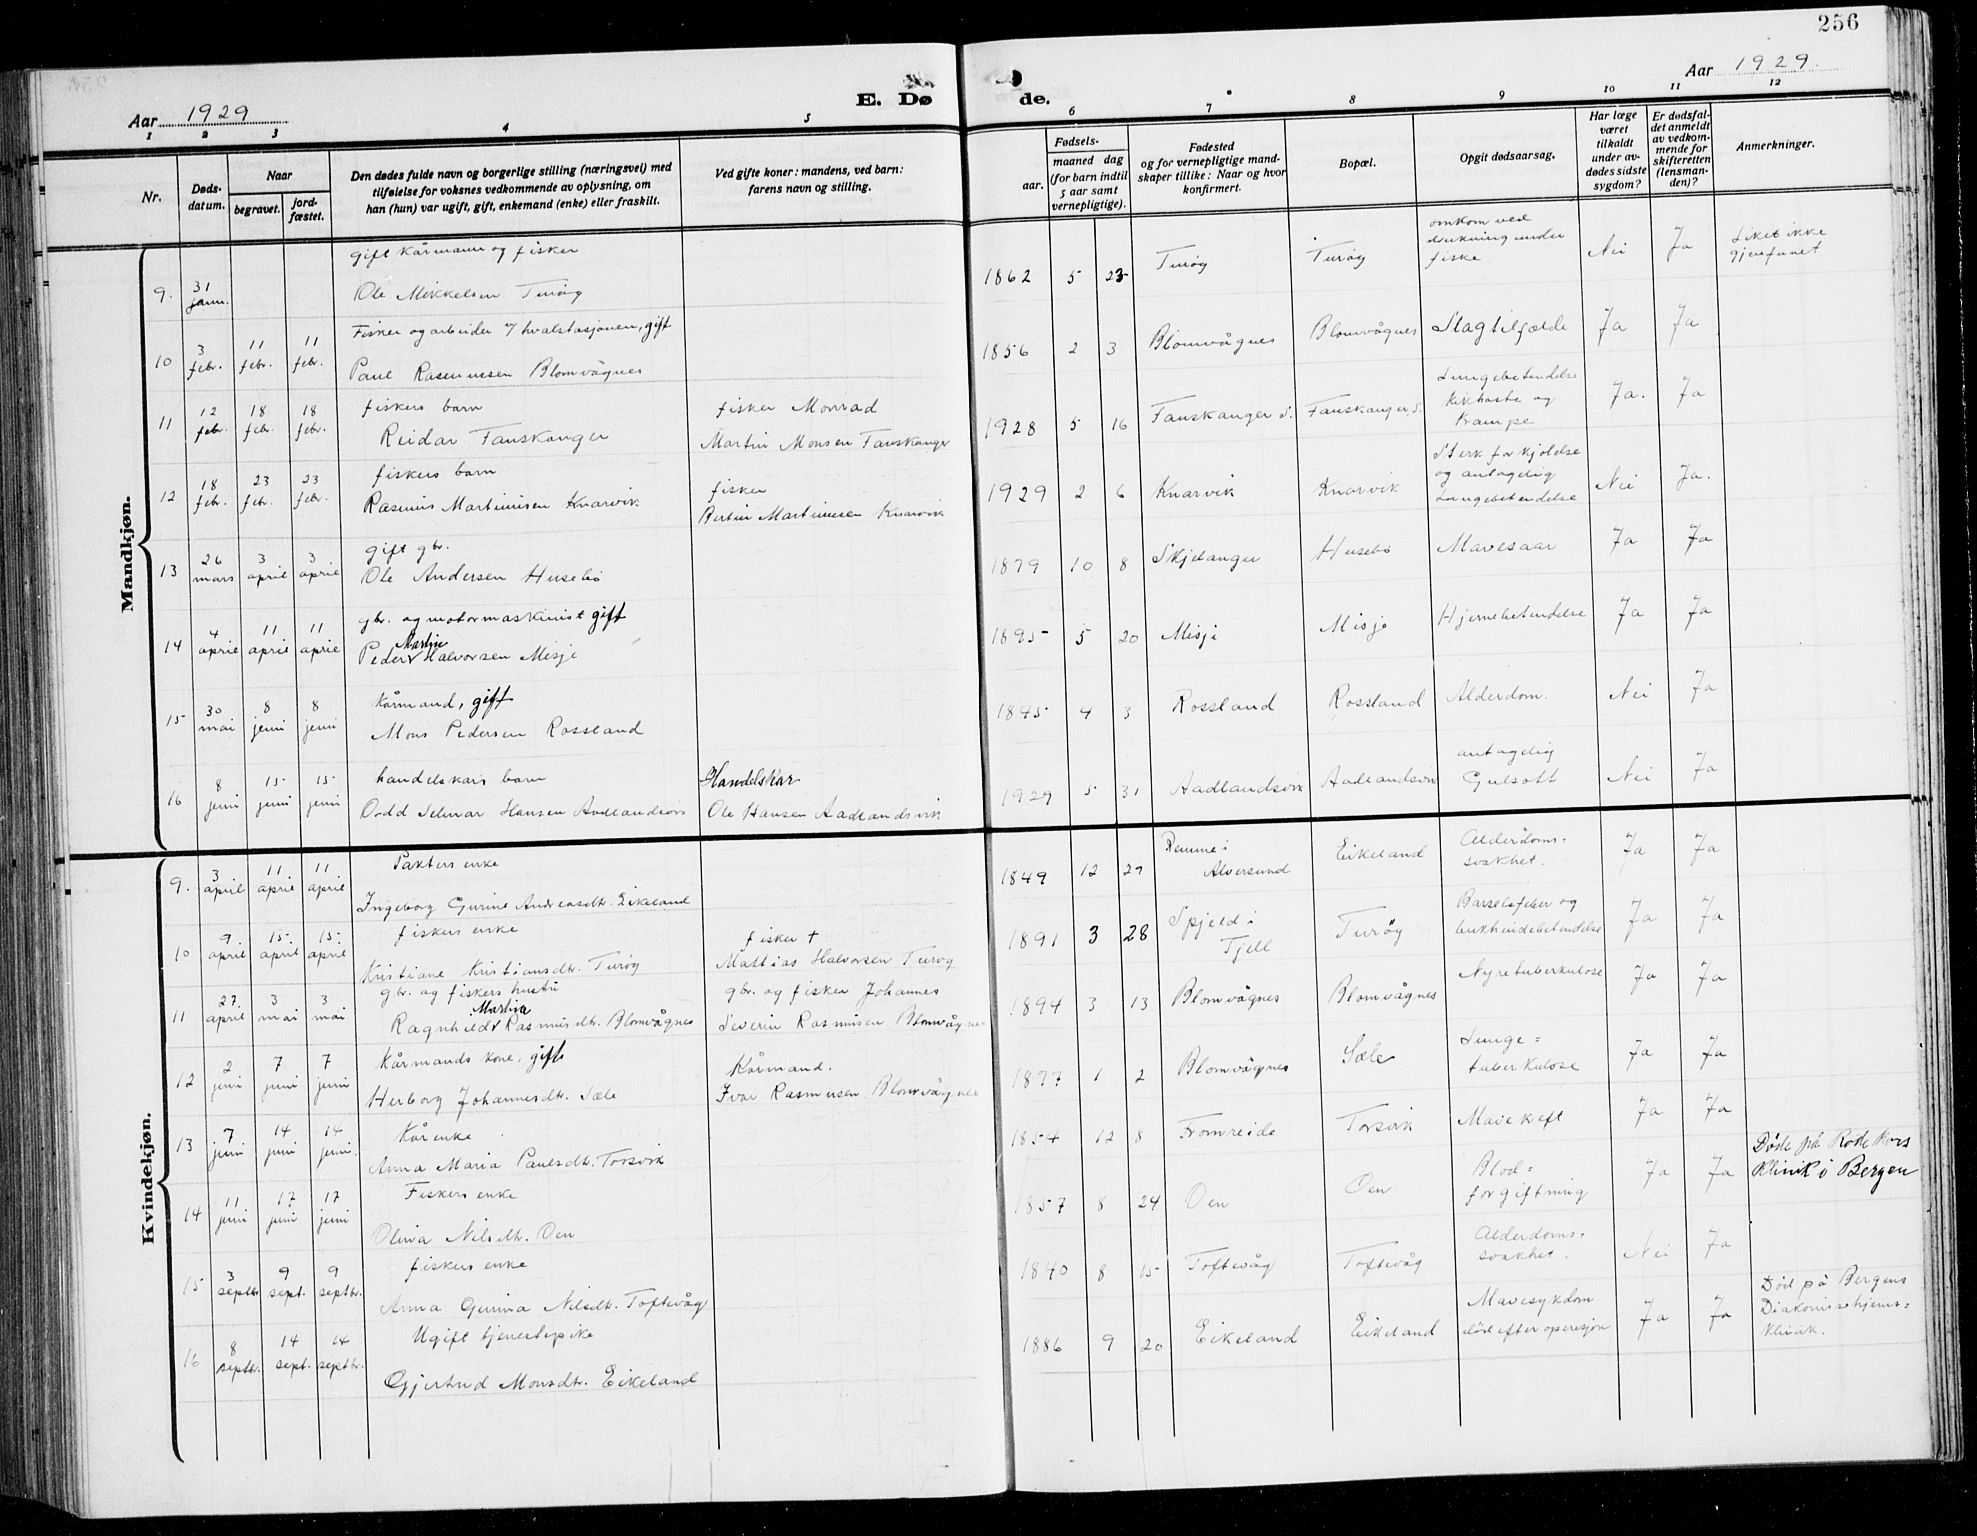 256
Aar 1929
E. Dø
de.
Aar 1929.
1 2 3 4 5 6 7 8 9 10 11 12
Nr.
Døds-
datum.
Naar
begravet.
jord-
fæstet.
Den dødes fulde navn og borgerlige stilling (næringsvei) med
tilføielse for voksnes vedkommende av oplysning, om
han (hun) var ugift, gift, enkemand (enke) eller fraskilt.
Ved gifte koner: mandens, ved barn:
farens navn og stilling.
Fødsels-
aar.
maaned dag
(for barn indtil
5 aar samt
vernepligtige).
Fødested
og for vernepligtige mand-
skaper tillike: Naar og hvor
konfirmert.
Bopæl.
Opgit dødsaarsag.
Har læge
været
tilkaldt
under av-
dødes sidste
sygdom?
Er dødsfal-
det anmeldt
av vedkom-
mende for
skifteretten
(lensman-
den)?
Anmerkninger.
Mandkjøn.
gift kårmann og fisker
9. 31 jann. Ole Mikkelsen Turøy 1862 5 23 Turøy Turøy omkom ved
drukning under
fiske Nei Ja Liket ikke
gjenfunnet
Fisker og arbeider v/ hvalstasjonen, gift
10 3 febr. 11 febr. 11 febr. Paul Rasmussen Blomvågnes 1856 2 3 Blomvågnes Blomvågnes Slagtilfælde Ja Ja
fiskers barn fisker Monrad
11 12 febr. 18 febr. 18 febr. Reidar Fauskanger Martin Monsen Fauskanger 1928 5 16 Fauskanger S. Fauskanger S. Lungebetendelse
kikhoste og
krampe Ja. Ja
fiskers barn fisker
12 18 febr. 23 febr. 23 febr. Rasmus Martinusen Knarvik Bertin Martinusen Knarvik 1929 2 6 Knarvik Knarvik Sterk forkjølelse
og antagelig
Lungebetendelse Nei Ja.
gift gbr.
13 26 mars 3 april 3 april Ole Andersen Husebø 1879 10 8 Skjelanger Husebø Mavesaar Ja Ja
gbr. og motormaskinist gift
14 4 april 11 april 11 april Peder Martin Halvorsen Misje 1895 5 20 Misje Misje Hjernebetendelse Ja Ja
Kårmand, gift
15 30 mai 8 juni 8 juni Mons Pedersen Rossland 1845 4 3 Rossland Rossland Alderdom. Nei Ja
handelskars barn Handelskar
16 8 juni 15 juni 15 juni Odd Selmar Hansen Aadlandsvik Ole Hansen Aadlandsvik 1929 5 31 Aadlandsvik Aadlandsvik antagelig
Gulsott Nei Ja
Kvindekjøn.
Pakters enke
9. 3 april 11 april 11 april Ingeborg Gurine Andreasdtr. Eikeland 1849 12 27 Remme i
Alversund Eikeland Alderdoms=
svakhet. Ja Ja
fiskers enke fisker +
10 9. april 15. april 15. april Kristiane Kristiansdtr. Turøy Mattias Halvorsen Turøy 1891 3 28 Spjeld i
Fjell Turöy Barselsfeber og
bukhindebetendelse Ja Ja
gbr. og fiskers hustru gbr. og fisker Johannes
11 27. april 3 mai 3 mai Ragnhild Martina Rasmusdtr. Blomvågnes Severin Rasmusen Blomvågnes 1894 3 13 Blomvågnes Blomvågnes Nyretuberkulose Ja Ja
Kårmands kone, gift Kårmand.
12 2 juni 7 juni 7 juni Herborg Johannesdtr. Sæle Ivar Rasmusen Blomvågnes 1877 1 2 Blomvågnes Sæle Lunge=
tuberkulose Ja Ja
Kårenke
13 7 juni 14 juni 14 juni. Anna Maria Paulsdtr. Torsvik 1854 12 8 Fromreide Torsvik Mavekreft Ja Ja
Fiskers enke
14 11 juni 17 juni 17 juni Olina Nilsdtr. Oen 1857 8 24 Oen Oen Blod=
forgiftning Ja Ja Døde på Røde Kors
Klinik i Bergen
fiskers enke
15 3 septbr 9 sept. 9 septbr. Anna Gurina Nilsdtr. Toftevåg 1840 8 15 Toftevåg Toftevåg Alderdoms=
svakhet. Nei Ja
Ugift tjenestepike
16 8 septbr. 14 sept. 14 septbr. Gjertrud Monsdtr. Eikeland 1886 9 20 Eikeland Eikeland Mavesykdom
död efter operasjon Ja Ja Död på Bergens
Diakonissehjems=
klinik.